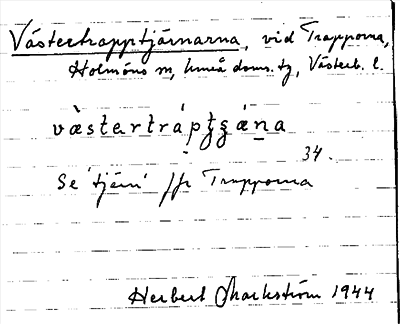 Västertrapptjärnarna, vid Trapporna,
Holmöns sn, Umeå doms. tg, Västerb. l.
vàstɐrtrápt̮ʂɐ́n̠a
34.
Se 'tjärn' ffr Trapporna
Herbert Markström 1944